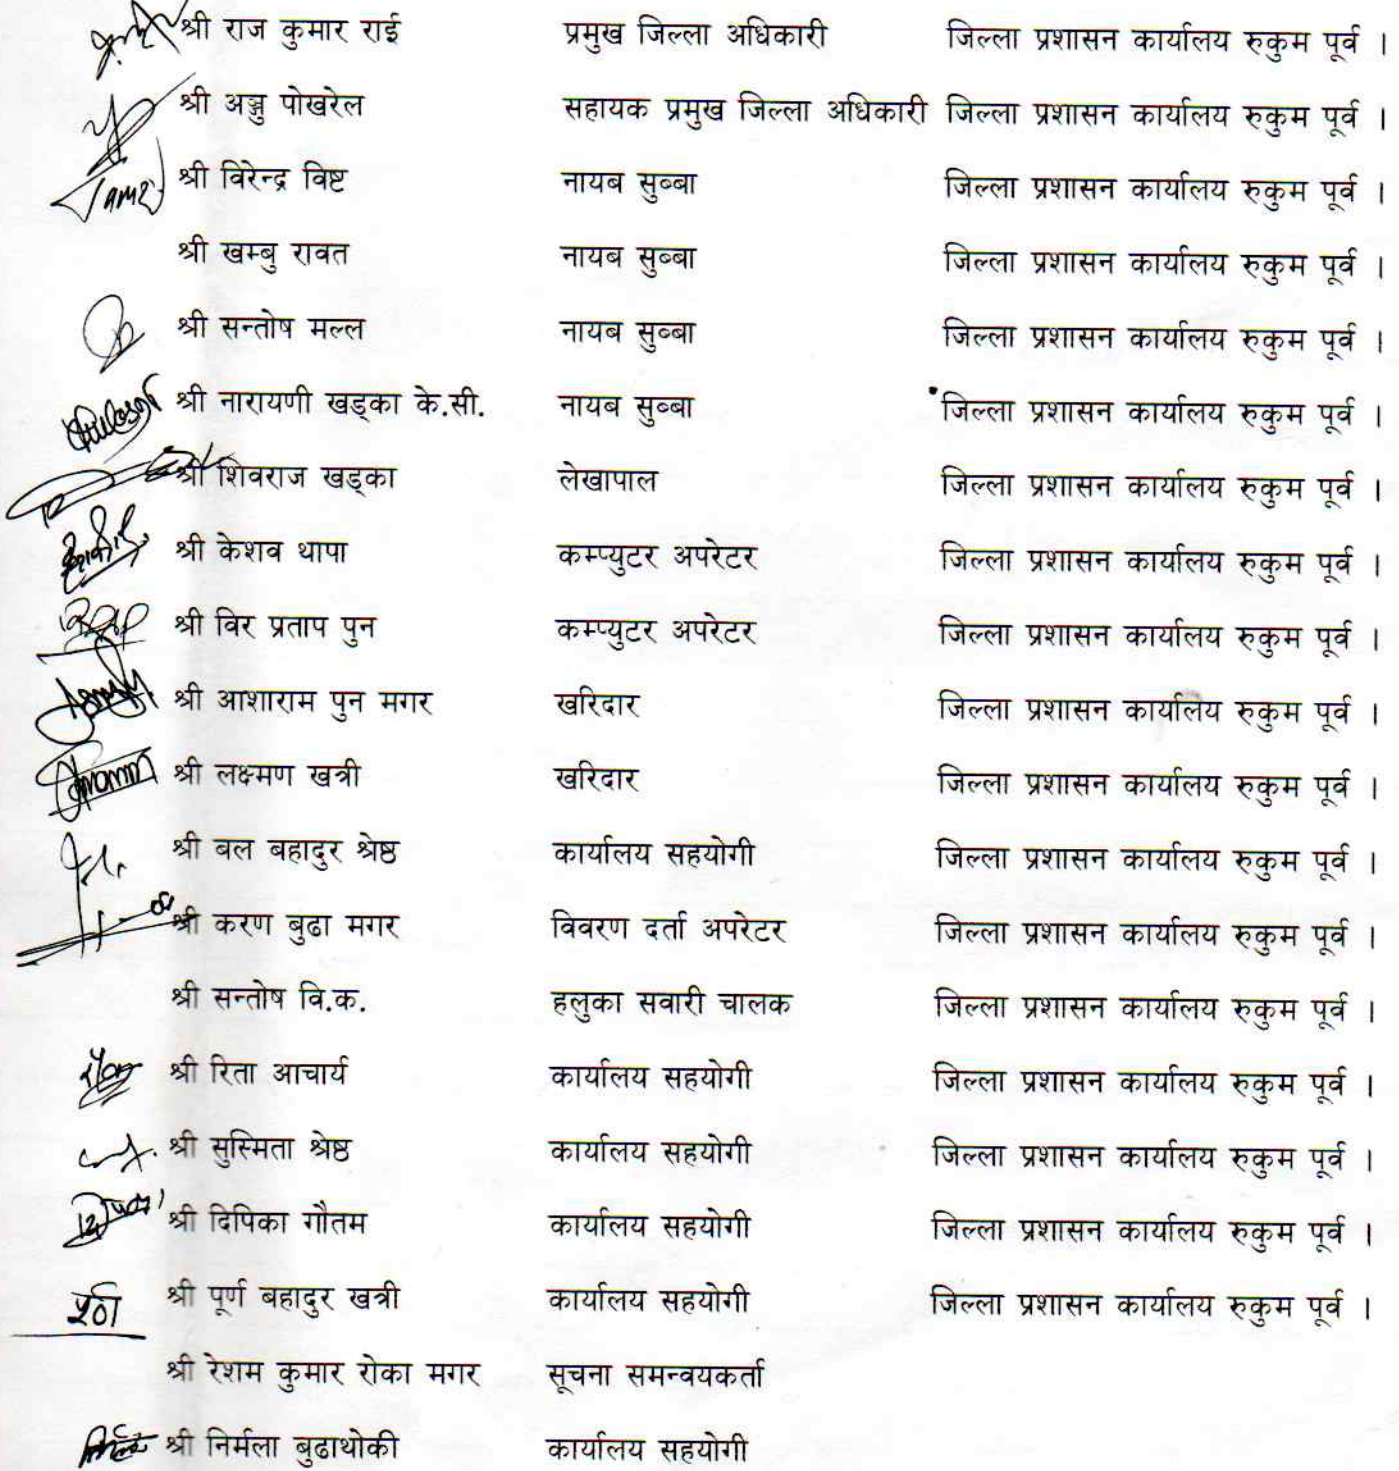 श्री राज कुमार राई प्रमुख जिल्ला अधिकारी जिल्ला प्रशासन कार्यालय रुकुम पूर्व ।
श्री अञ्जु पोखरेल सहायक प्रमुख जिल्ला अधिकारी जिल्ला प्रशासन कार्यालय रुकुम पूर्व ।
श्री विरेन्द्र विष्ट नायब सुब्बा जिल्ला प्रशासन कार्यालय रुकुम पूर्व ।
श्री खम्बु रावत नायब सुब्बा जिल्ला प्रशासन कार्यालय रुकुम पूर्व ।
श्री सन्तोष मल्ल नायब सुब्बा जिल्ला प्रशासन कार्यालय रुकुम पूर्व ।
श्री नारायणी खड्का के.सी. नायब सुब्बा जिल्ला प्रशासन कार्यालय रुकुम पूर्व ।
श्री शिवराज खड्का लेखापाल जिल्ला प्रशासन कार्यालय रुकुम पूर्व ।
श्री केशव थापा कम्प्युटर अपरेटर जिल्ला प्रशासन कार्यालय रुकुम पूर्व ।
श्री विर प्रताप पुन कम्प्युटर अपरेटर जिल्ला प्रशासन कार्यालय रुकुम पूर्व ।
श्री आशाराम पुन मगर खरिदार जिल्ला प्रशासन कार्यालय रुकुम पूर्व ।
श्री लक्ष्मण खत्री खरिदार जिल्ला प्रशासन कार्यालय रुकुम पूर्व ।
श्री बल बहादुर श्रेष्ठ कार्यालय सहयोगी जिल्ला प्रशासन कार्यालय रुकुम पूर्व ।
श्री करण बुढा मगर विवरण दर्ता अपरेटर जिल्ला प्रशासन कार्यालय रुकुम पूर्व ।
श्री सन्तोष वि.क. हलुका सवारी चालक जिल्ला प्रशासन कार्यालय रुकुम पूर्व ।
श्री रिता आचार्य कार्यालय सहयोगी जिल्ला प्रशासन कार्यालय रुकुम पूर्व ।
श्री सुस्मिता श्रेष्ठ कार्यालय सहयोगी जिल्ला प्रशासन कार्यालय रुकुम पूर्व ।
श्री दिपिका गौतम कार्यालय सहयोगी जिल्ला प्रशासन कार्यालय रुकुम पूर्व ।
श्री पूर्ण बहादुर खत्री कार्यालय सहयोगी जिल्ला प्रशासन कार्यालय रुकुम पूर्व ।
श्री रेशम कुमार रोका मगर सूचना समन्वयकर्ता
श्री निर्मला बुढाथोकी कार्यालय सहयोगी